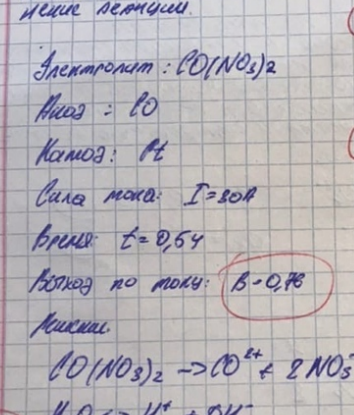 нение реакции.
Электролит: CO(NO3)2
Анод: CO
Катод: Pt
Сила тока: I=30А
Время: t=0,5ч
Выход по току: B=0,76
CO(NO3)2 → CO2+ + 2NO3-